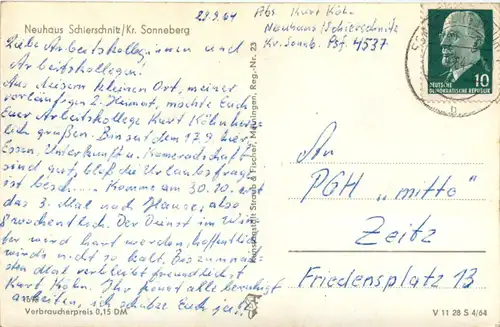 Neuhaus Schierschnitz/Kr. Sonneberg
29.9.64
Abs. Kurt Köhn
Neuhaus/Schierschnitz
Kr. Sonnb. Psf. 4537
Liebe Arbeitskolleginnen und
Arbeitskollegen!
Aus diesem kleinen Ort, meiner
vorläufigen 2. Heimat, möchte Euch
Euer Arbeitskollege Kurt Köhn herz-
lich grüßen. Bin seit dem 17.9. hier,
Essen, Unterkunft u. Kameradschaft
sind gut, bloß die Urlaubsfrage
ist besch... Komme am 30.10. erst
das 3. Mal nach Hause, also
8 wöchentlich. Der Dienst im Win-
ter wird hart werden, hoffentlich
wirds nicht so kalt. Bis zum näch-
sten Mal verbleibt freundlichst
Kurt Köhn. Ihr könnt alle beruhigt
arbeiten, ich schütze Euch ja!
Verbraucherpreis 0,15 DM
Kunstanstalt Straub & Fischer, Meiningen, Reg.-Nr. 23
10
DEUTSCHE
DEMOKRATISCHE REPUBLIK
b
An
PGH „mitte"
Zeitz
Friedensplatz 13
V 11 28 S 4/64